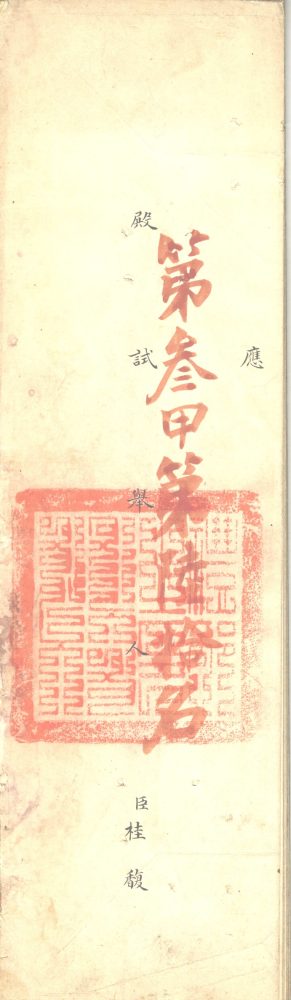 應
殿試舉人臣桂馥
第叁甲第陸拾名